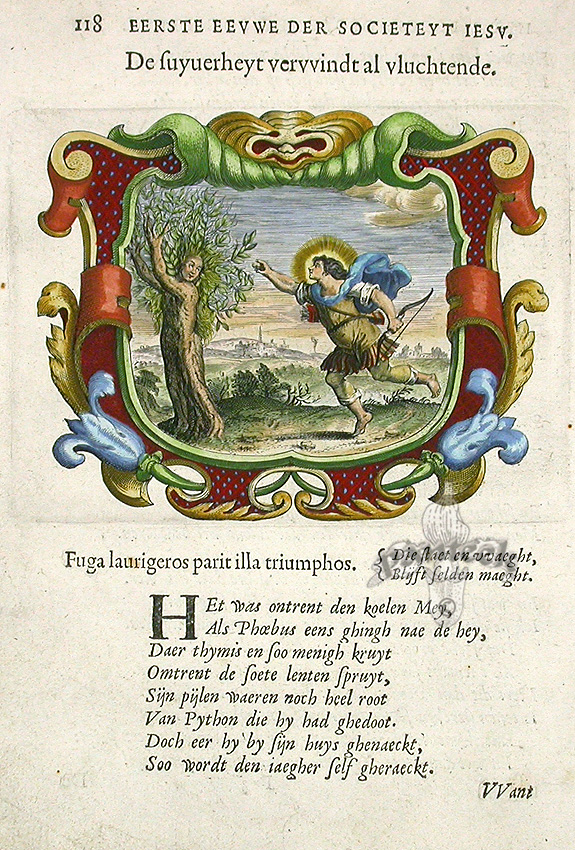 118 EERSTE EEVWE DER SOCIETEYT IESV.
De suyuerheyt vervvindt al vluchtende.
Fuga laurigeros parit illa triumphos.
{ Die staet en vvaeght,
{ Blijft selden maeght.
HEt was ontrent den koelen Mey,
Als Phœbus eens ghingh nae de hey,
Daer thymis en soo menigh kruyt
Omtrent de soete lenten spruyt,
Sijn pijlen waeren noch heel root
Van Python die hy had ghedoot.
Doch eer hy by sijn huys ghenaeckt,
Soo wordt den iaegher self gheraeckt.
VVant